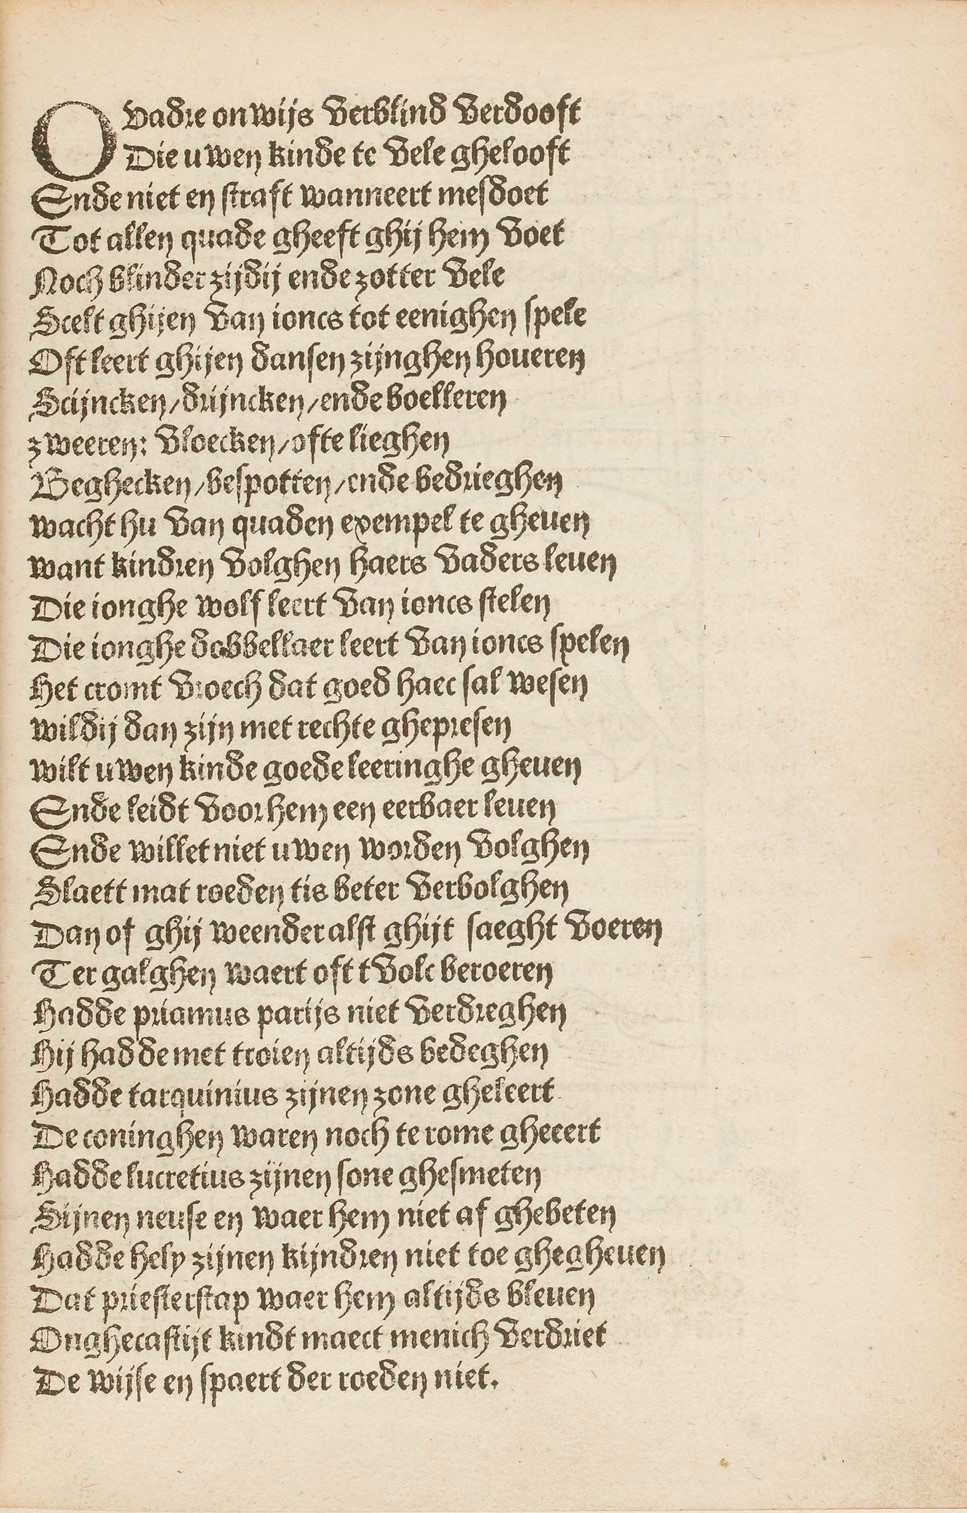 O Vadre onwijs verblind verdooft
Die uwen kinde te vele ghelooft
Ende niet en straft wanneert mesdoet
Tot allen quade gheeft ghij hem voet
Noch blinder zijdij ende zotter vele
Stelt ghijen van ioncs tot eenighen spele
Oft leert ghijen dansen zijnghen houeren
Scijncken/drijncken/ende boelleren
zweeren: vloecken/ofte lieghen
Beghecken/bespotten/ende bedrieghen
wacht hu van quaden exempel te gheuen
want kindren volghen haers vaders leuen
Die ionghe wolf leert van ioncs stelen
Die ionghe dobbellaer leert van ioncs spelen
Het cromt vroech dat goed haec sal wesen
wildij dan zijn met rechte ghepresen
wilt uwen kinde goede leeringhe gheuen
Ende leidt voor hem een eerbaer leuen
Ende willet niet uwen worden volghen
Slaett mat roeden tis beter verbolghen
Dan of ghij weender alst ghijt saeght voeren
Ter galghen waert oft tvolc beroeren
Hadde priamus parijs niet verdreghen
Hij hadde met troien altijds bedeghen
Hadde tarquinius zijnen zone gheleert
De coninghen waren noch te rome gheeert
Hadde lucretius zijnen sone ghesmeten
Sijnen neuse en waer hem niet af ghebeten
Hadde hely zijnen kijndren niet toe ghegheuen
Dat priesterstap waer hem altijds bleuen
Onghecastijt kindt maect menich verdriet
De wijse en spaert der roeden niet.